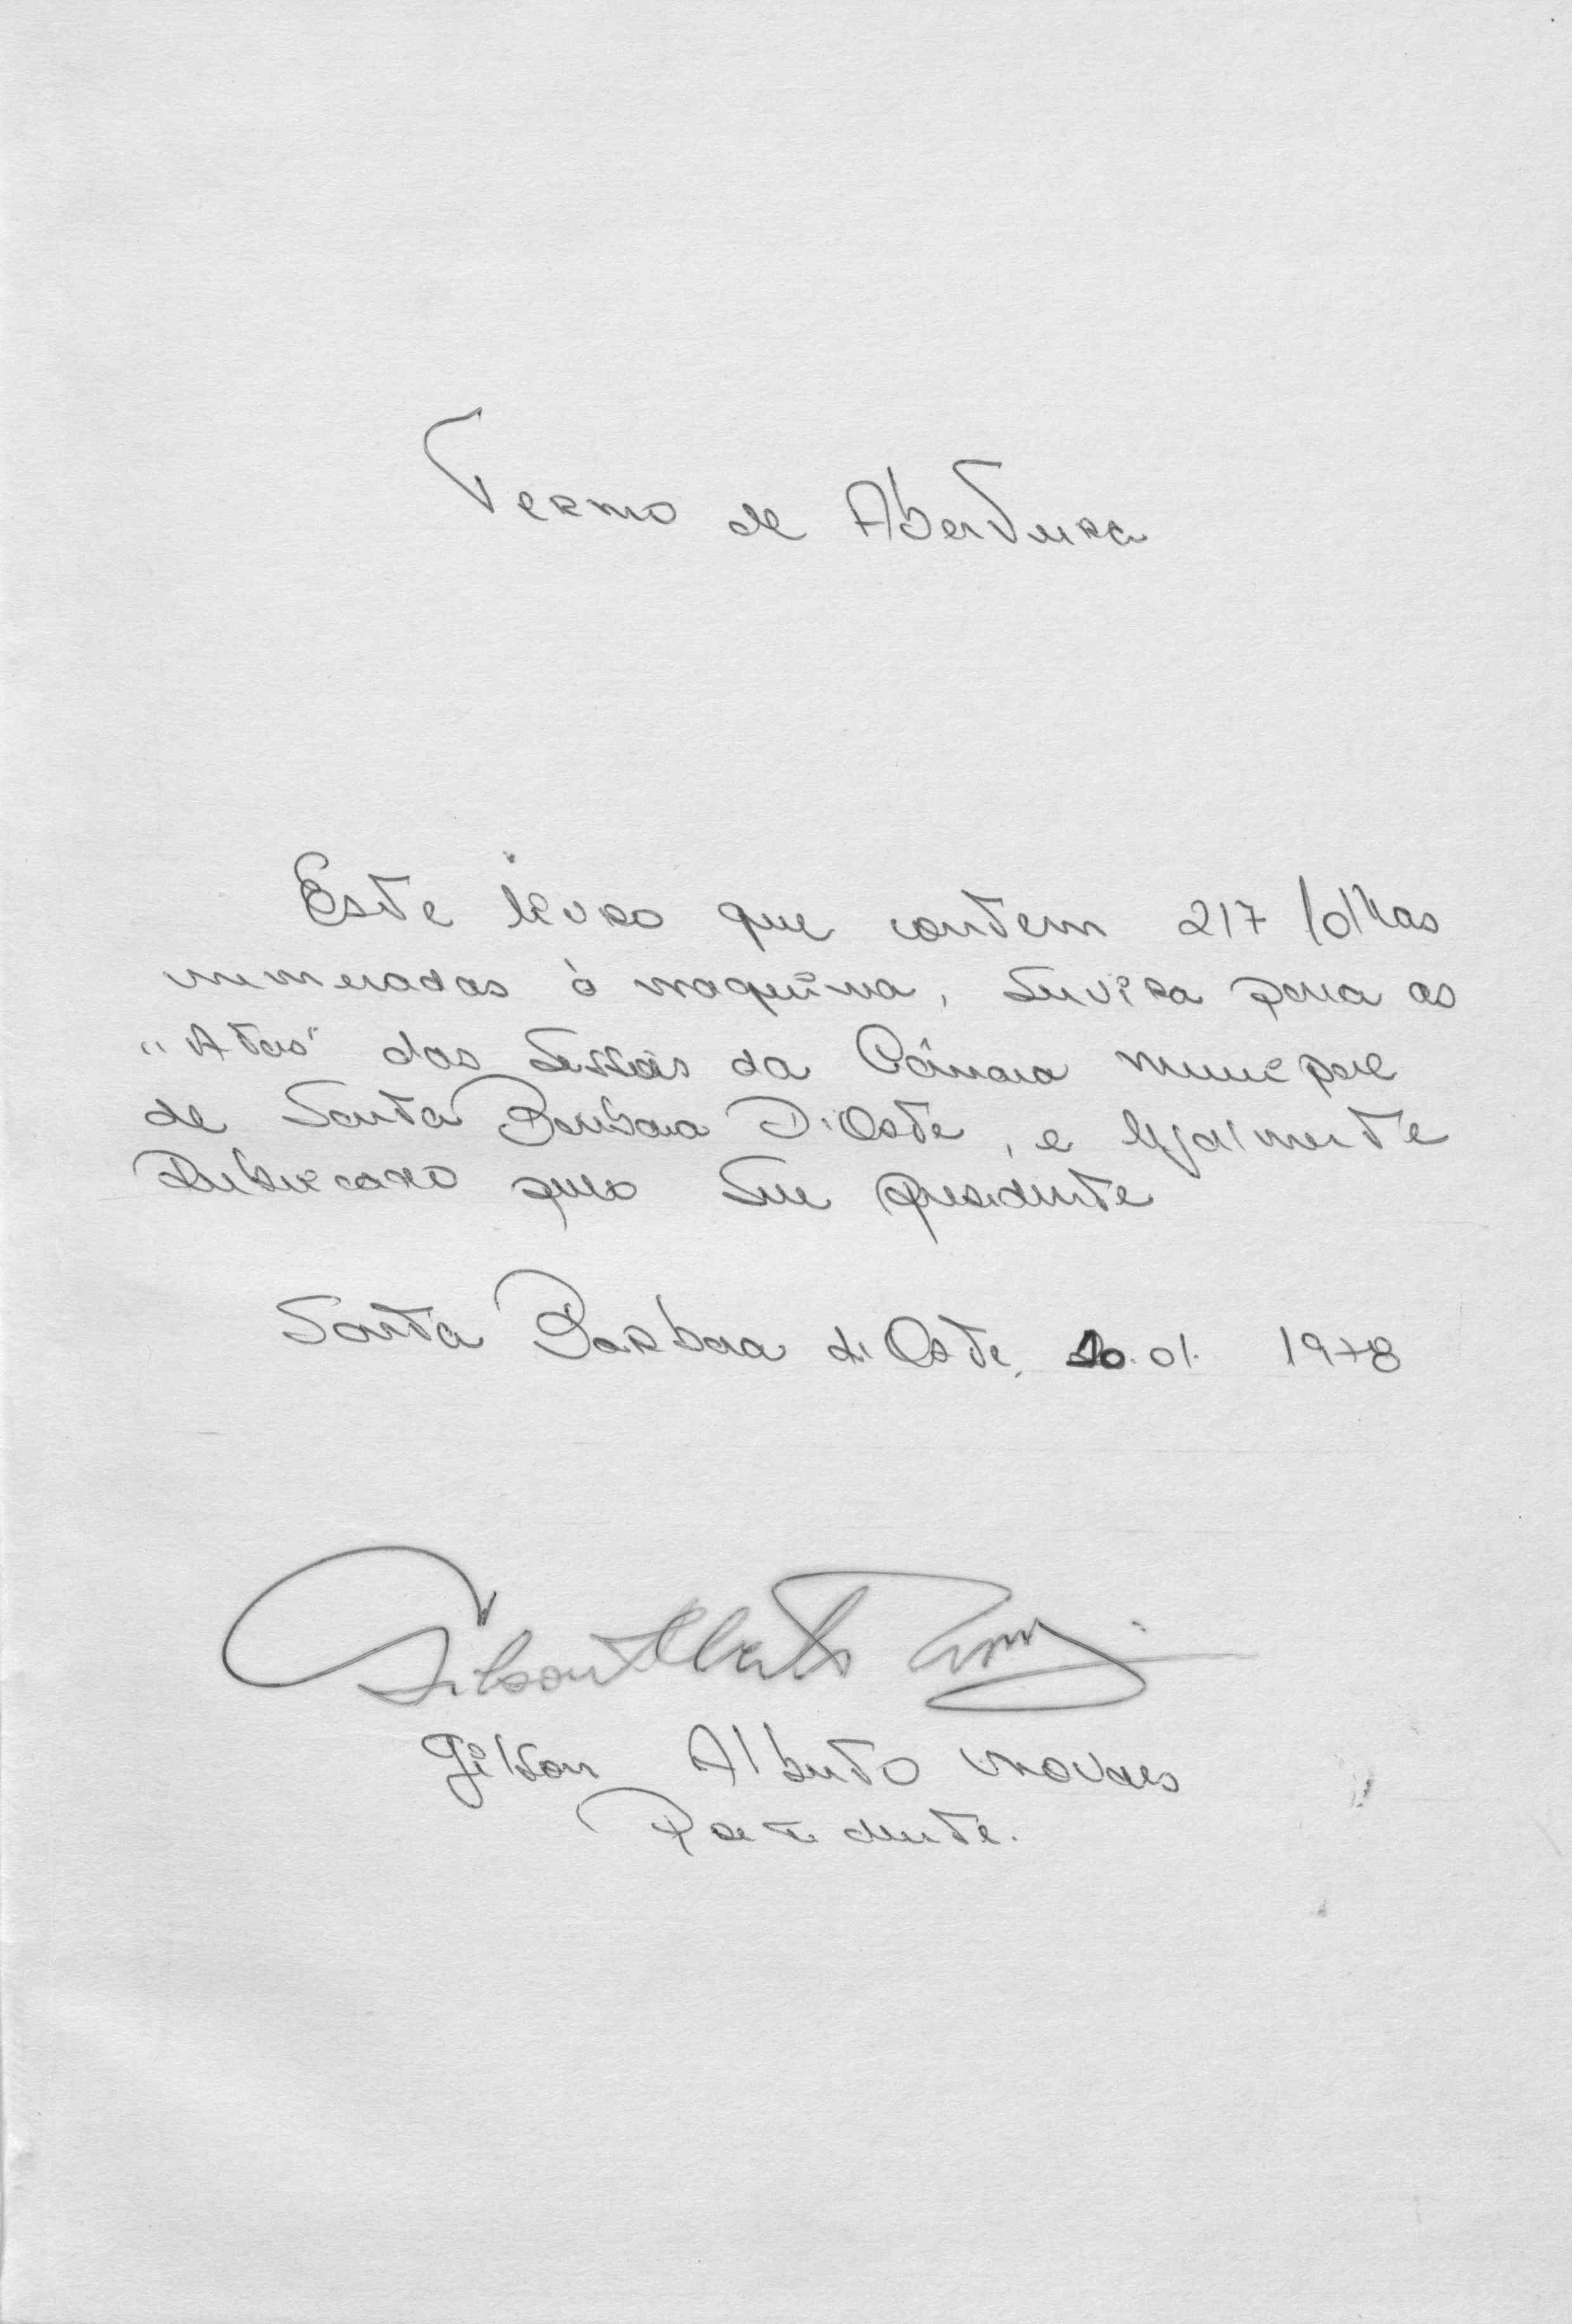 Termo de Abertura
Este livro que contem 217 folhas
numeradas à maquina, servira para as
"Atas" das Sessões da Câmara municipal
de Santa Barbara D'Oeste, e legalmente
Rubricado pelo seu presidente
Santa Barbara d'Oeste, 10.01.1978
Gilson Alberto Novaes
Presidente.